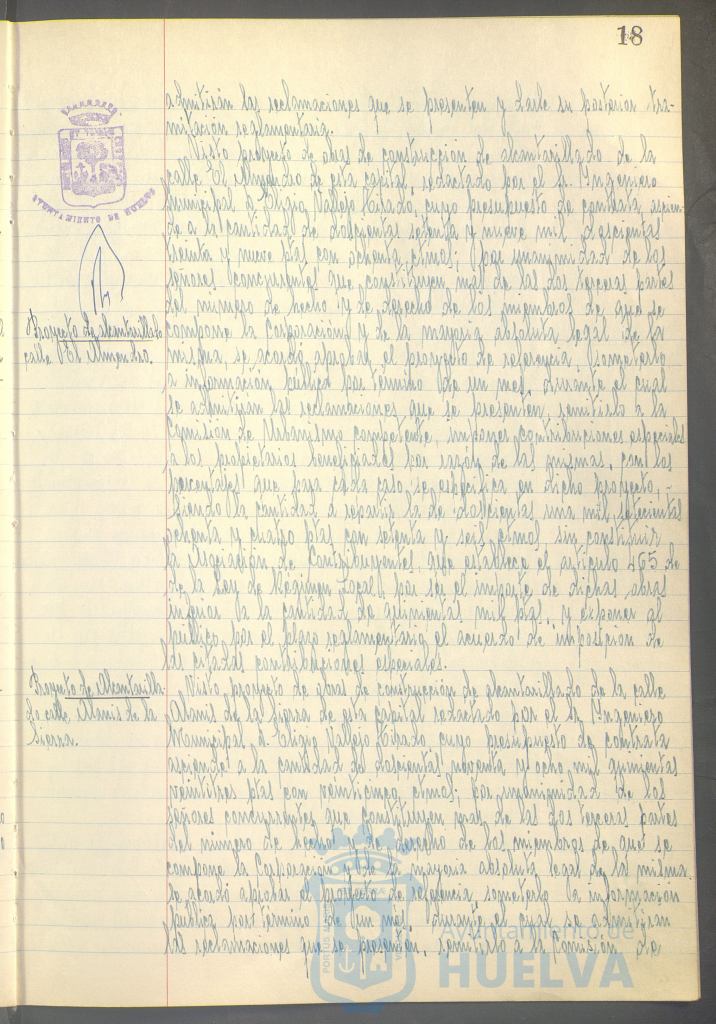 18
admitirán las reclamaciones que se presenten y darle su posterior tra-
mitación reglamentaria.
Visto proyecto de obras de construcción de alcantarillado de la
calle El Almendro de esta capital, redactado por el Sr. Ingeniero
Municipal D. Eligio Vallejo Tirado, cuyo presupuesto de contrata ascien-
de a la cantidad de doscientas setenta y nueve mil doscientas
treinta y nueve ptas con ochenta ctmos; por unanimidad de los
señores concurrentes que constituyen mas de las dos terceras partes
del numero de hecho y de derecho de los miembros de que se
compone la Corporación y de la mayoria absoluta legal de la
misma, se acordó aprobar el proyecto de referencia, someterlo
a información publica por término de un mes, durante el cual
se admitirán las reclamaciones que se presenten, remitirlo a la
Comisión de Urbanismo competente, imponer contribuciones especiales
a los propietarios beneficiados por razon de las mismas, con los
porcentajes que para cada caso se especifica en dicho proyecto,
siendo la cantidad a repartir la de doscientas una mil setecientas
ochenta y cuatro ptas con setenta y seis ctmos, sin constituir
la Asociación de Contribuyentes que establece el articulo 465 de
de la Ley de Regimen Local, por ser el importe de dichas obras
inferior a la cantidad de quinientas mil ptas. y exponer al
publico por el plazo reglamentario el acuerdo de imposición de
las citadas contribuciones especiales.
Visto proyecto de obras de construcción de alcantarillado de la calle
Alanis de la Sierra de esta capital redactado por el Sr. Ingeniero
Municipal D. Eligio Vallejo Tirado cuyo presupuesto de contrata
asciende a la cantidad de doscientas noventa y ocho mil quinientas
veintitres ptas con veinticinco ctmos; por unanimidad de los
señores concurrentes que constituyen mas de las dos terceras partes
del numero de hecho y de derecho de los miembros de que se
compone la Corporación y de la mayoria absoluta legal de la misma
se acordó aprobar el proyecto de referencia, someterlo a información
publica por término de un mes, durante el cual se admitiran
las reclamaciones que se presenten, remitirlo a la Comisión de
AYUNTAMIENTO DE HUELVA
Proyecto de alcantarillado
calle El Almendro.
Proyecto de Alcantarilla-
do calle Alanis de la
Sierra.
Ayuntamiento de
HUELVA